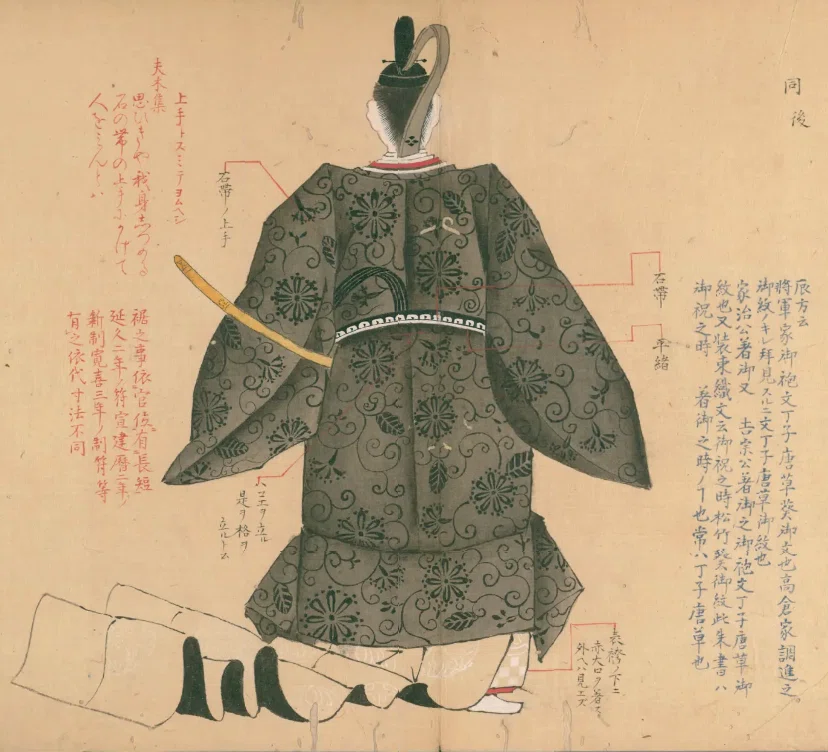 同後
辰方云
将軍家御袍文丁子唐草葵御文也高倉家調進之
御紋ノキレ拝見スルニ文丁子唐草御紋也
家治公著御又 吉宗公著御之御袍文丁子唐草御
紋也又装束織文云御祝之時松竹葵御紋此朱書ハ
御祝之時 著御之時ノヿ也常ハ丁子唐草也
石帯
平緒
表袴ノ下ニ
赤大口ヲ著ス
外ヘハ見エズ
石帯ノ上手
上手トスミテヨムヘシ
夫木集
思ひきや我身しつめる
石の帯の上手にかけて
人をみんとハ
ヲ立ル
是ヲ格ヲ
立ルト云
裾之事依官位有長短
延久二年ノ符宣建暦二年ノ
新制寛喜三年ノ制符等
有之依代寸法不同